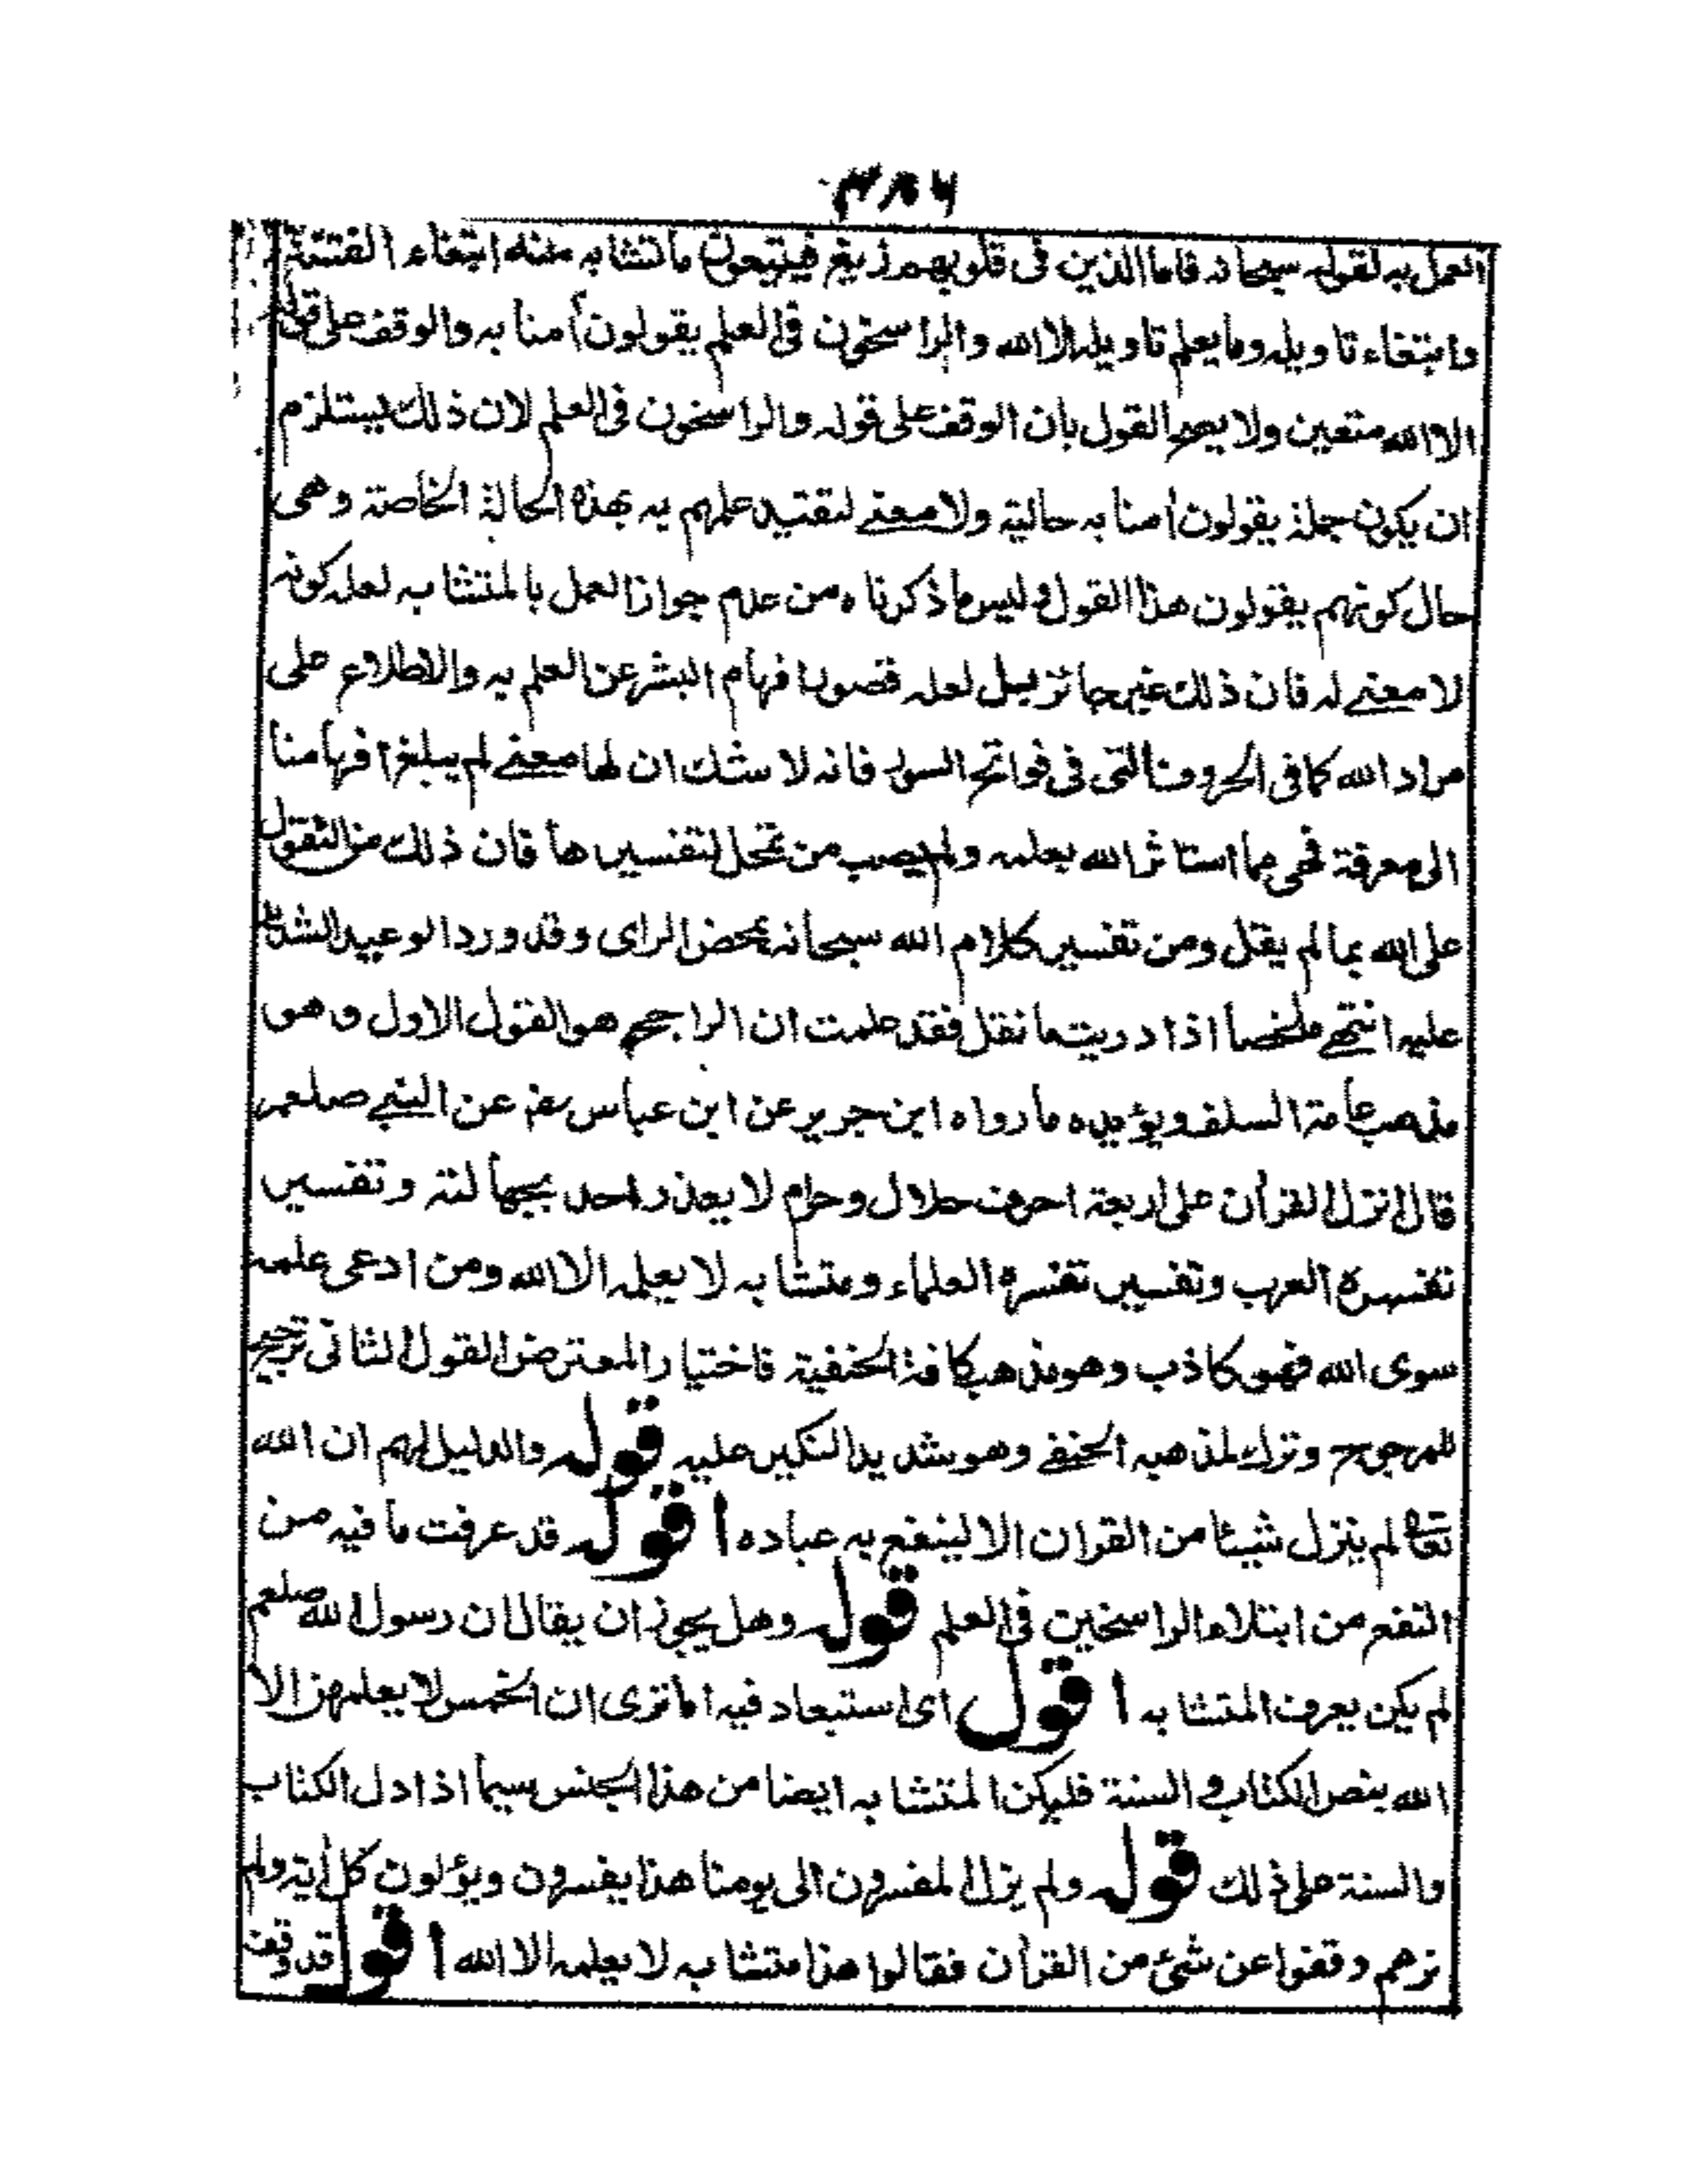 العمل به لقوله سبحانه فاما الذين فى قلوبهم زيغ فيتبعون ما تشابه منه ابتغاء الفتنة
وابتغاء تاويله وما يعلم تاويله الا الله والراسخون فى العلم يقولون أمنا به والوقف على قوله
الا الله متعين ولا يصح القول بان الوقف على قوله والراسخون فى العلم لان ذلك يستلزم
ان يكون جملة يقولون أمنا به حالية ولا معنے لتقييد علمهم به بهذه الحالة الخاصة وهى
حال كونهم يقولون هذا القول وليس ما ذكرناه من عدم جواز العمل بالمتشابه لعله كونه
لا معنے له فان ذلك غير جائز بل لعله قصور افهام البشر عن العلم به والاطلاع على
مراد الله كما فى الحروف التى فى فواتح السور فانه لا شك ان لها معنے لم يبلغ افهامنا
الى معرفة فهى مما استاثر الله بعلمه ولم يصب من تمحل لتفسيرها فان ذلك من التقول
على الله بما لم يقل ومن تفسير كلام الله سبحانه بمحض الراى وقد ورد الوعيد الشديد
عليه انتهے ملخصا اذا دريت ما نقل فقد علمت ان الراجح هو القول الاول وهو
مذهب عامة السلف ويؤيده ما رواه ابن جرير عن ابن عباس رضـ عن النبے صلعم
قال انزل القرأن على اربعة احرف حلال وحرام لا يعذر احد بجهالته وتفسير
تفسره العرب وتفسير تفسره العلماء ومتشابه لا يعلمه الا الله ومن ادعى علمه
سوى الله فهو كاذب وهو مذهب كافة الحنفية فاختيار المعترض القول الثانى ترجيح
للمرجوح وترك لمذهبه الحنفے وهو شديد النكير عليه قوله والدليل لهم ان الله
تعالى لم ينزل شيئا من القران الا لينفع به عباده اقول قد عرفت ما فيه من
النفع من ابتلاء الراسخين فى العلم قوله وهل يجوز ان يقال ان رسول الله صلعم
لم يكن يعرف المتشابه اقول اى استبعاد فيه اما ترى ان الخمس لا يعلمهن الا
الله بنص الكتاب والسنة فليكن المتشابه ايضا من هذا الجنس سيما اذا دل الكتاب
والسنة على ذلك قوله ولم يزل المفسرون الى يومنا هذا يفسرون ويؤلون كل أية ولم
نرهم وقفوا عن شئ من القرأن فقالوا هذا متشابه لا يعلمه الا الله اقول قد وقف